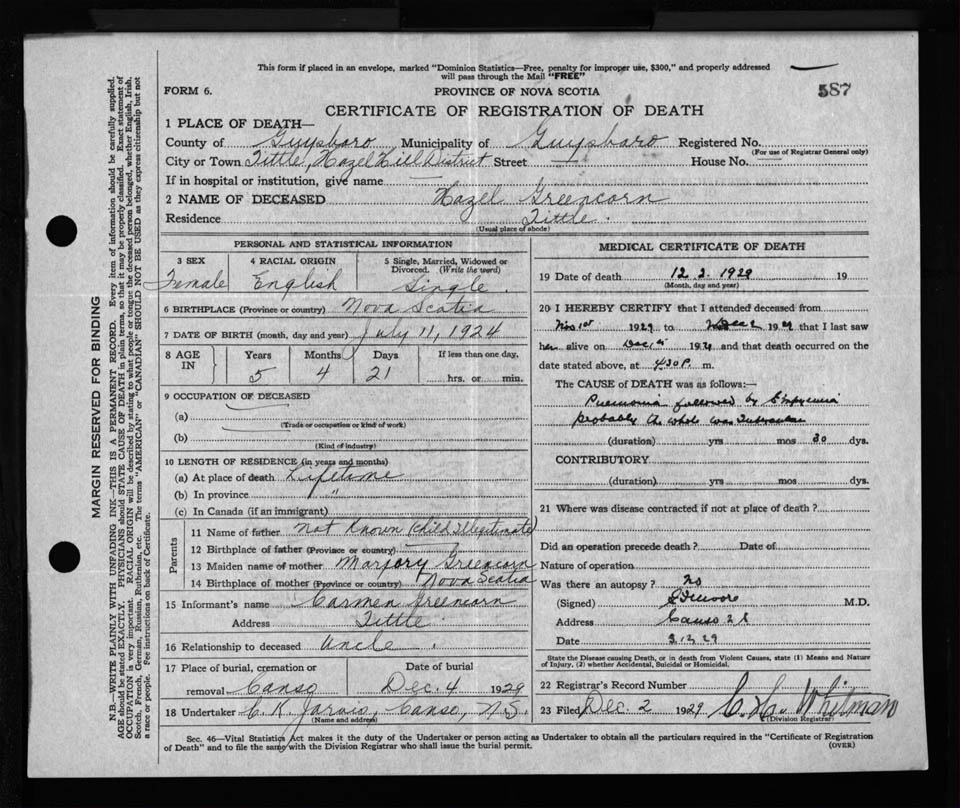 This form if placed in an envelope, marked "Dominion Statistics—Free, penalty for improper use, $300," and properly addressed
will pass through the Mail "FREE"
FORM 6.
PROVINCE OF NOVA SCOTIA
587
CERTIFICATE OF REGISTRATION OF DEATH
1 PLACE OF DEATH—
County of Guysboro Municipality of Guysboro Registered No.
(For use of Registrar General only)
City or Town Tittle, Hazel Hill District Street — House No. —
If in hospital or institution, give name —
2 NAME OF DECEASED Hazel Greencorn
Residence Tittle.
(Usual place of abode)
PERSONAL AND STATISTICAL INFORMATION
3 SEX Female
4 RACIAL ORIGIN English
5 Single, Married, Widowed or
Divorced. (Write the word)
Single.
6 BIRTHPLACE (Province or country) Nova Scotia
7 DATE OF BIRTH (month, day and year) July 11, 1924
8 AGE IN
Years Months Days If less than one day,
5 4 21 hrs. or min.
9 OCCUPATION OF DECEASED
(a)
(Trade or occupation or kind of work)
(b)
(Kind of industry)
10 LENGTH OF RESIDENCE (in years and months)
(a) At place of death Lifetime
(b) In province "
(c) In Canada (if an immigrant)
Parents
11 Name of father Not Known (Child Illegitimate)
12 Birthplace of father (Province or country) —
13 Maiden name of mother Marjory Greencorn
14 Birthplace of mother (Province or country) Nova Scotia
15 Informant's name Carmen Greencorn
Address Tittle
16 Relationship to deceased Uncle.
17 Place of burial, cremation or Date of burial
removal Canso Dec. 4 1929
18 Undertaker C. K. Jarvis, Canso, N.S.
(Name and address)
MEDICAL CERTIFICATE OF DEATH
19 Date of death 12.2.1929 19
(Month, day and year)
20 I HEREBY CERTIFY that I attended deceased from
Nov 1st 1929 to Dec 2 1929 that I last saw
her alive on Dec 1st 1929 and that death occurred on the
date stated above, at 4.30 P. m.
The CAUSE of DEATH was as follows:—
Pneumonia followed by Empyema
probably the whole was Tubercular
(duration) yrs mos 30 dys.
CONTRIBUTORY
(duration) yrs mos dys.
21 Where was disease contracted if not at place of death?
Did an operation precede death? Date of
Nature of operation
Was there an autopsy? No
(Signed) Moore M.D.
Address Canso
Date 3.12.29
State the Disease causing Death, or in death from Violent Causes, state (1) Means and Nature
of Injury, (2) whether Accidental, Suicidal or Homicidal.
22 Registrar's Record Number
23 Filed Dec. 2 1929 C. H. Whitman
(Division Registrar)
Sec. 46—Vital Statistics Act makes it the duty of the Undertaker or person acting as Undertaker to obtain all the particulars required in the "Certificate of Registration
of Death" and to file the same with the Division Registrar who shall issue the burial permit.
(OVER)
MARGIN RESERVED FOR BINDING
N.B.—WRITE PLAINLY WITH UNFADING INK—THIS IS A PERMANENT RECORD. Every item of information should be carefully supplied.
AGE should be stated EXACTLY. PHYSICIANS should STATE CAUSE OF DEATH in plain terms, so that it may be properly classified. Exact statement of
OCCUPATION is very important. RACIAL ORIGIN will be described by stating to what people or tongue the deceased person belonged, whether English, Irish,
Scotch, French, German, Russian, Ruthenian, etc. The terms "AMERICAN" or "CANADIAN" SHOULD NOT BE USED as they express citizenship but not
a race or people. Fee instructions on back of Certificate.